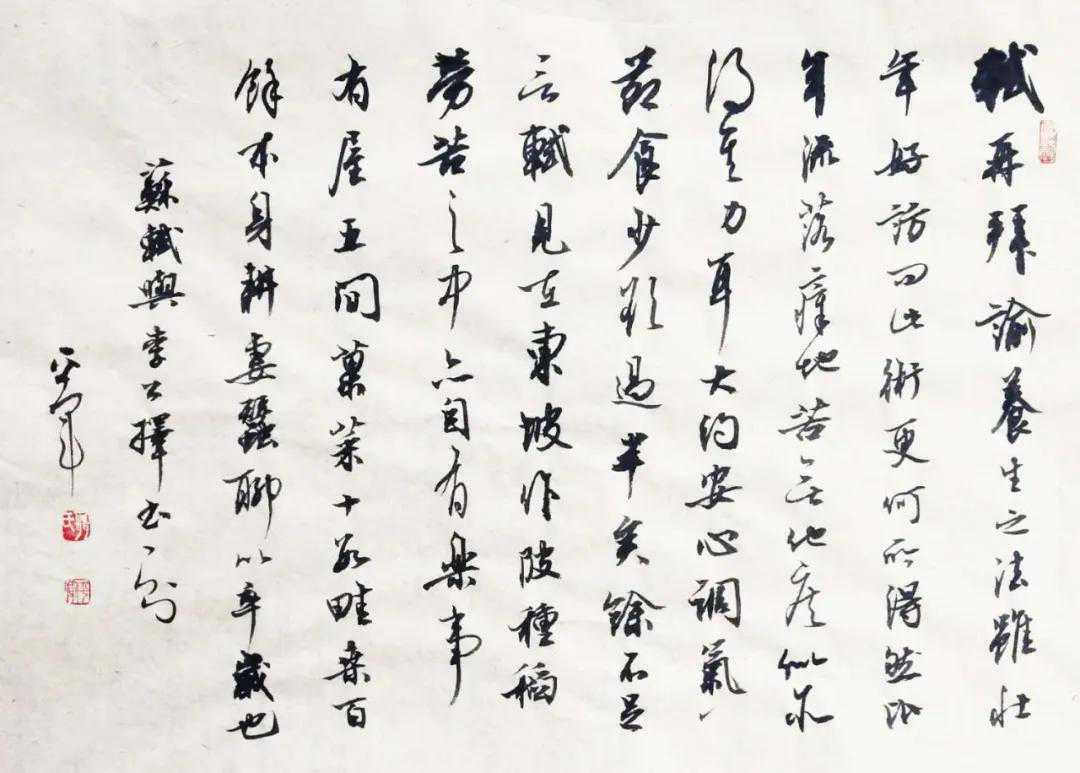 軾再拜諭養生之法雖壯
年好訪問此術更何所得然比
年流落瘴地苦無他疾似亦
得其力耳大約安心調氣
節食少欲過半矣餘不足
言軾見在東坡作陂種稻
勞苦之中亦自有樂事
有屋五間菓菜十數畦桑百
餘本身耕妻蠶聊以卒歲也
蘇軾與李公擇書一則